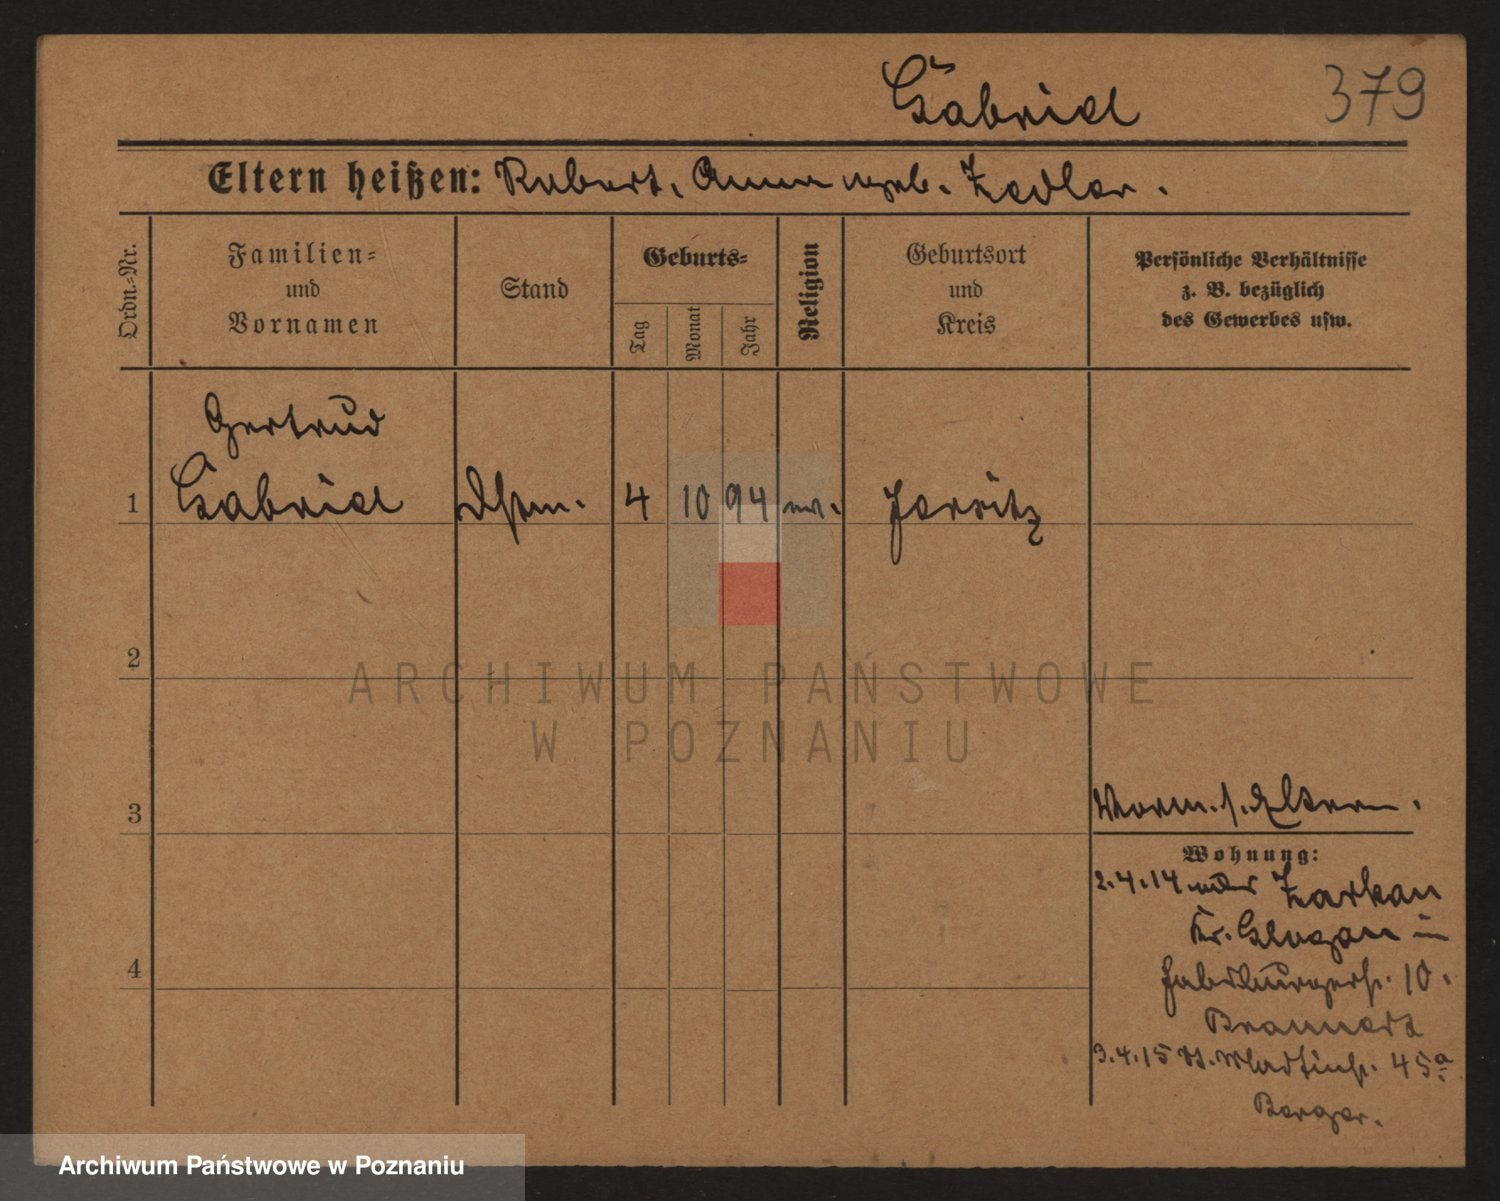 Gabriel 379
Eltern heißen: Robert, Anna geb. Zedler.
Ordn.=Nr.
Familien=
und
Vornamen
Stand
Geburts=
Tag
Monat
Jahr
Religion
Geburtsort
und
Kreis
Persönliche Verhältnisse
z. B. bezüglich
des Gewerbes usw.
Gertrud
1 Gabriel 4 10 94 ev. Jersitz
2
ARCHIWUM PAŃSTWOWE
W POZNANIU
3 Eltern.
Wohnung:
2.4.14 Zarkau
Kr. Glogau in
10.
3.4.15 St. Martinstr. 45a
4
Berger.
Archiwum Państwowe w Poznaniu